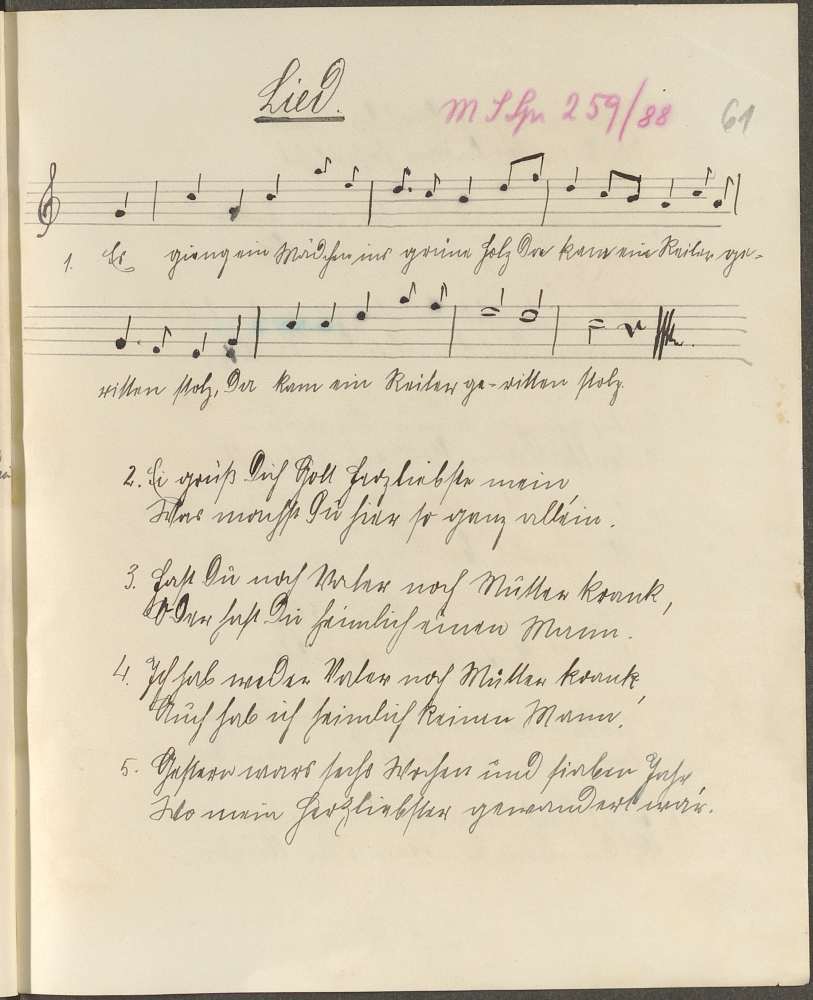 Lied.
M S Spr 259/88 61
1. Es gieng ein Mädchen ins grüne Holz Da kam ein Reiter ge-
ritten stolz, Da kam ein Reiter ge-ritten stolz.
2. Ei grüß Dich Gott Herzliebste mein,
Was machst Du hier so ganz allein.
3. Hast Du noch Vater noch Mutter krank,
Oder hast Du heimlich einen Mann.
4. Ich hab weder Vater noch Mutter krank,
Auch hab ich heimlich keinen Mann.
5. Gestern wars sechs Wochen und sieben Jahr
Wo mein Herzliebster gewandert war.